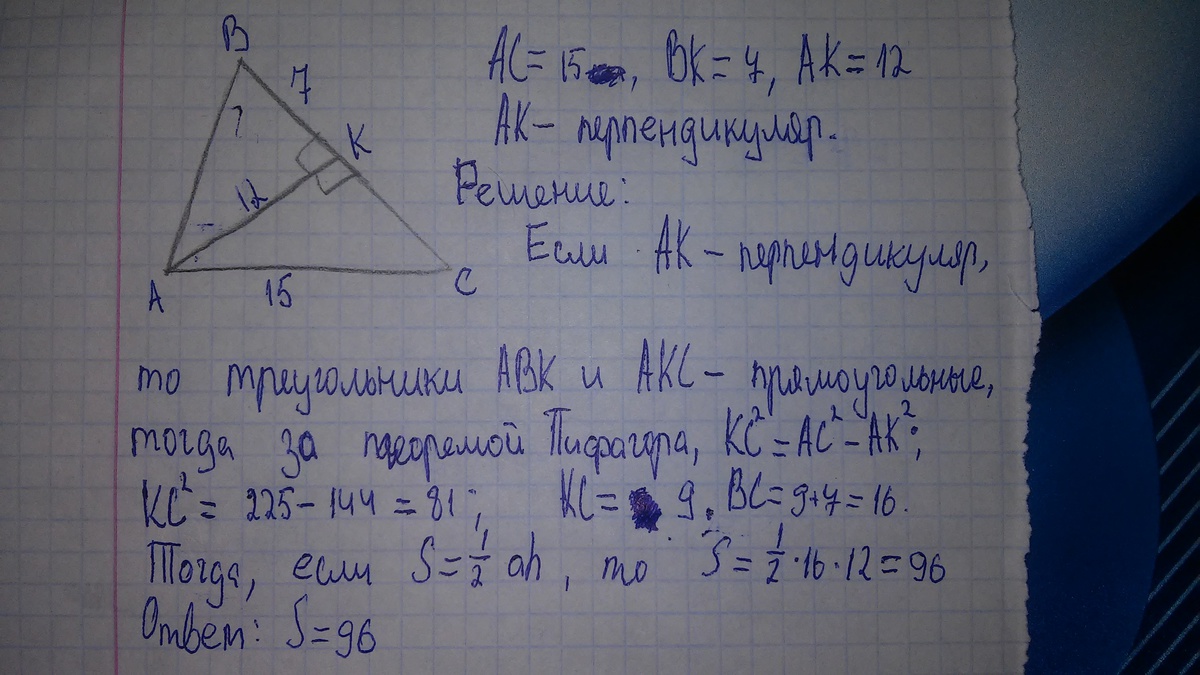 B
7
K
?
12
A
15
C
AC = 15, BK = 7, AK = 12
AK – перпендикуляр.
Решение:
Если AK – перпендикуляр,
то треугольники ABK и AKC – прямоугольные,
тогда за теоремой Пифагора, KC² = AC² – AK²;
KC² = 225 – 144 = 81; KC = 9. BC = 9+7 = 16.
Тогда, если S = 1/2 ah, то S = 1/2 · 16 · 12 = 96
Ответ: S = 96